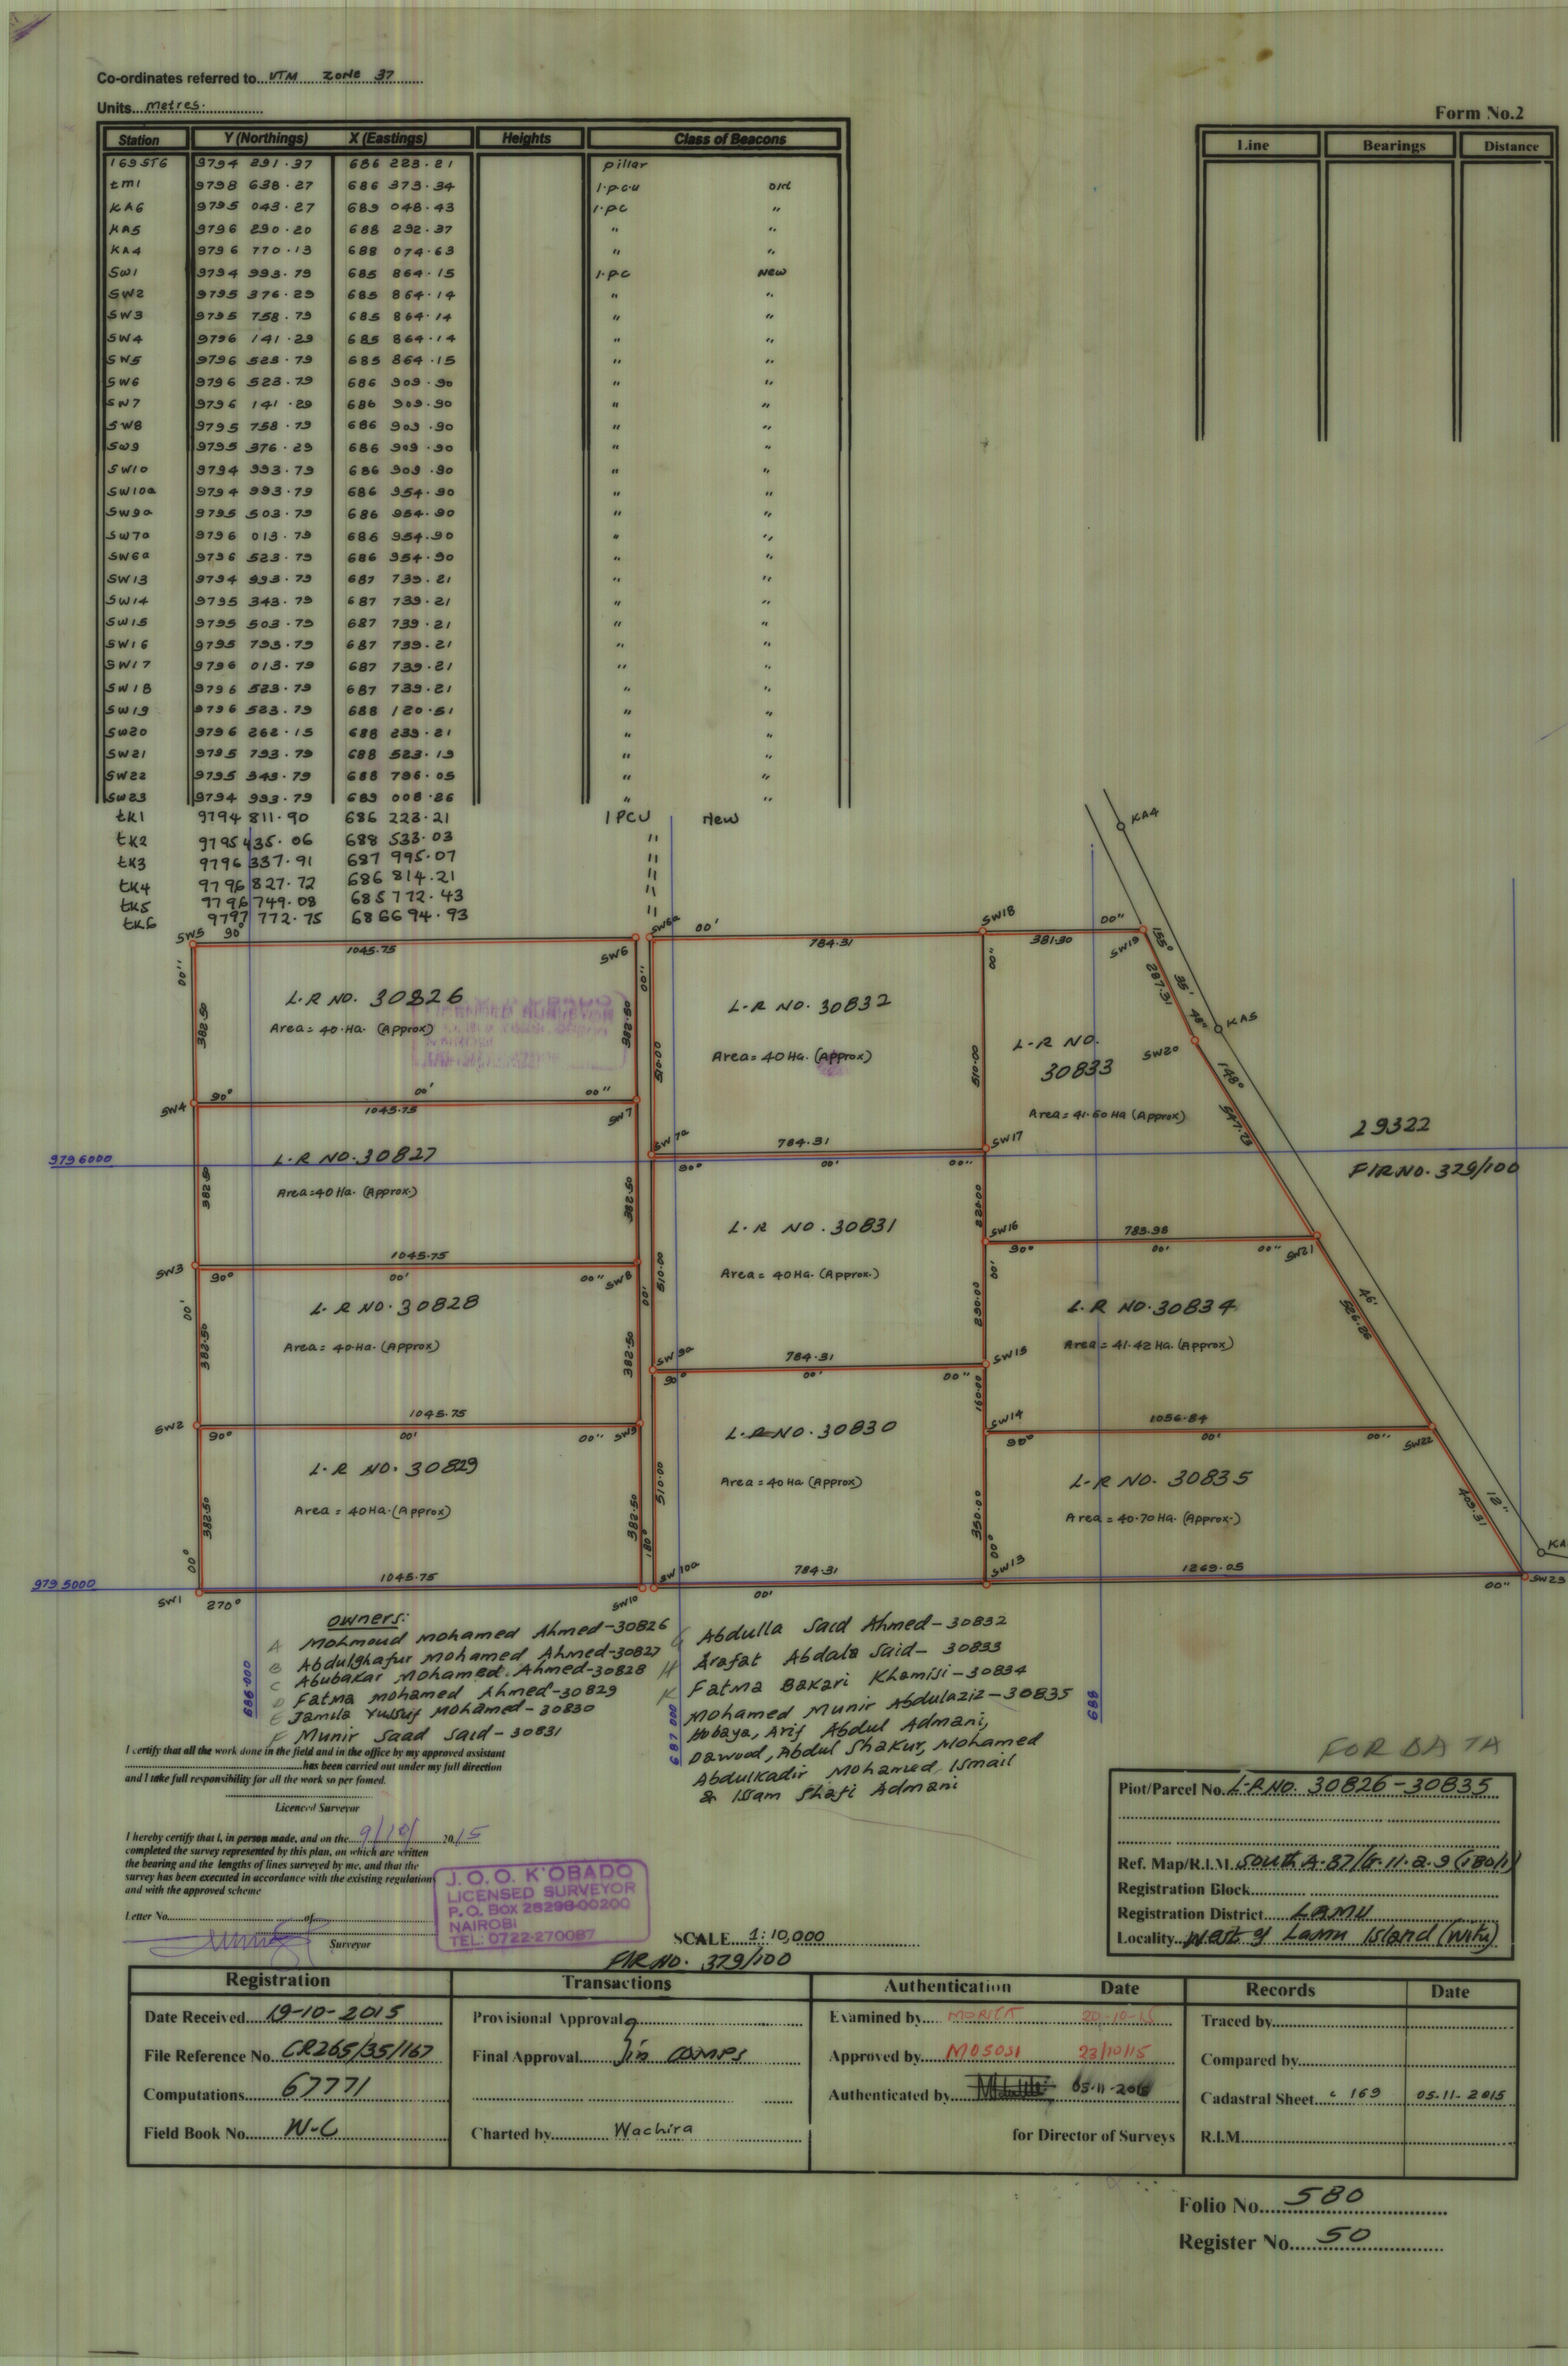 Co-ordinates referred to... UTM Zone 37
Units... metres.
Form No.2
Station Y (Northings) X (Eastings) Heights Class of Beacons
Line Bearings Distance
169ST6 9794 291.37 686 223.21 pillar
tm1 9798 638.27 686 373.34 I.p.c.u old
KA6 9795 043.27 689 048.43 I.pc "
KA5 9796 290.20 688 292.37 " "
KA4 9796 770.13 688 074.63 " "
SW1 9794 993.79 685 864.15 I.pc New
SW2 9795 376.29 685 864.14 " "
SW3 9795 758.79 685 864.14 " "
SW4 9796 141.29 685 864.14 " "
SW5 9796 523.79 685 864.15 " "
SW6 9796 523.79 686 909.90 " "
SW7 9796 141.29 686 909.90 " "
SW8 9795 758.79 686 909.90 " "
SW9 9795 376.29 686 909.90 " "
SW10 9794 993.79 686 909.90 " "
SW10a 9794 993.79 686 954.90 " "
SW9a 9795 503.79 686 954.90 " "
SW7a 9796 013.79 686 954.90 " "
SW6a 9796 523.79 686 954.90 " "
SW13 9794 993.79 687 739.21 " "
SW14 9795 343.79 687 739.21 " "
SW15 9795 503.79 687 739.21 " "
SW16 9795 793.79 687 739.21 " "
SW17 9796 013.79 687 739.21 " "
SW18 9796 523.79 687 739.21 " "
SW19 9796 523.79 688 120.51 " "
SW20 9796 262.15 688 239.21 " "
SW21 9795 793.79 688 523.19 " "
SW22 9795 343.79 688 796.05 " "
SW23 9794 993.79 689 008.26 " "
tk1 9794 811.90 686 223.21 IPCU New
tk2 9795 435.06 688 533.03 "
tk3 9796 337.91 687 995.07 "
tk4 9796 827.72 686 814.21 "
tk5 9796 749.08 685 772.43 "
tk6 9797 772.75 686694.93 "
KA4
SW5 90° 1045.75 SW6 SW6a 00' 784.31 SW18 00" 381.30 SW19 155°
00" 382.50 382.50 00" 510.00 00" 510.00 287.31 35' 48"
L.R NO. 30826
Area = 40.Ha. (Approx)
L.R NO. 30832
Area = 40 Ha. (Approx)
L-R NO.
30833
Area = 41.60 Ha (Approx)
SW20 KA5 148° 547.73
29322
F/R NO. 329/100
SW4 90° 00' 1045.75 00" SW7
SW7a 784.31 SW17
90° 00' 00"
9796000
L.R NO. 30827
Area = 40 Ha. (Approx.)
382.50 382.50 220.00
L.R NO. 30831
Area = 40 Ha. (Approx.)
SW16 783.98 SW21
90° 00' 00"
SW3 1045.75 SW8
90° 00' 00"
00' 382.50 382.50 00' 510.00 290.00 00' 526.26 46'
L.R NO. 30828
Area = 40.Ha. (Approx)
L.R NO. 30834
Area = 41.42 Ha. (Approx)
SW9a 784.31 SW15
90° 00' 00"
160.00
SW2 1045.75 SW9
90° 00' 00"
SW14 1056.84 SW22
90° 00' 00"
L.R NO. 30829
Area = 40 Ha. (Approx)
L.R NO. 30830
Area = 40 Ha (Approx)
L-R NO. 30835
Area = 40.70 Ha. (Approx.)
00° 382.50 382.50 180° 510.00 350.00 00° 409.31 12"
9795000
SW1 270° 1045.75 SW10 SW10a 784.31 00' SW13 1269.05 00" SW23 KA
686000
687000
688
owners:
A Mohmoud Mohamed Ahmed-30826
B Abdulghafur Mohamed Ahmed-30827
C Abubakar Mohamed Ahmed-30828
D Fatma Mohamed Ahmed-30829
E Jamila Yussuf Mohamed-30830
F Munir Saad Said-30831
G Abdulla Said Ahmed-30832
H Arafat Abdala Said-30833
K Fatma Bakari Khamisi-30834
Mohamed Munir Abdulaziz-30835
Hobaya, Arif Abdul Admani,
Dawood, Abdul Shakur, Mohamed
Abdulkadir Mohamed Ismail
& Islam Shafi Admani
I certify that all the work done in the field and in the office by my approved assistant
has been carried out under my full direction
and I take full responsibility for all the work so per fomed.
Licenced Surveyor
I hereby certify that I, in person made, and on the... 9/10/ 2015
completed the survey represented by this plan, on which are written
the bearing and the lengths of lines surveyed by me, and that the
survey has been executed in accordance with the existing regulation
and with the approved scheme
Letter No. of
Surveyor
J. O. O. K'OBADO
LICENSED SURVEYOR
P. O. Box 28298-00200
NAIROBI
TEL: 0722-270087
SCALE 1:10,000
F/R NO. 329/100
FOR DATA
Plot/Parcel No. L-R NO. 30826-30835
Ref. Map/R.I.M. South A-37/G.11.a.9 (180/1)
Registration Block
Registration District LAMU
Locality West of Lamu Island (Witu)
Registration Transactions Authentication Date Records Date
Date Received 19-10-2015
File Reference No. CR265/35/167
Computations 67771
Field Book No. N-C
Provisional Approval
Final Approval
Charted by Wachira
Examined by 20-10-15
Approved by MOSOSI 23/10/15
Authenticated by 05-11-2015
for Director of Surveys
Traced by
Compared by
Cadastral Sheet 169 05-11-2015
R.I.M.
Folio No. 580
Register No. 50